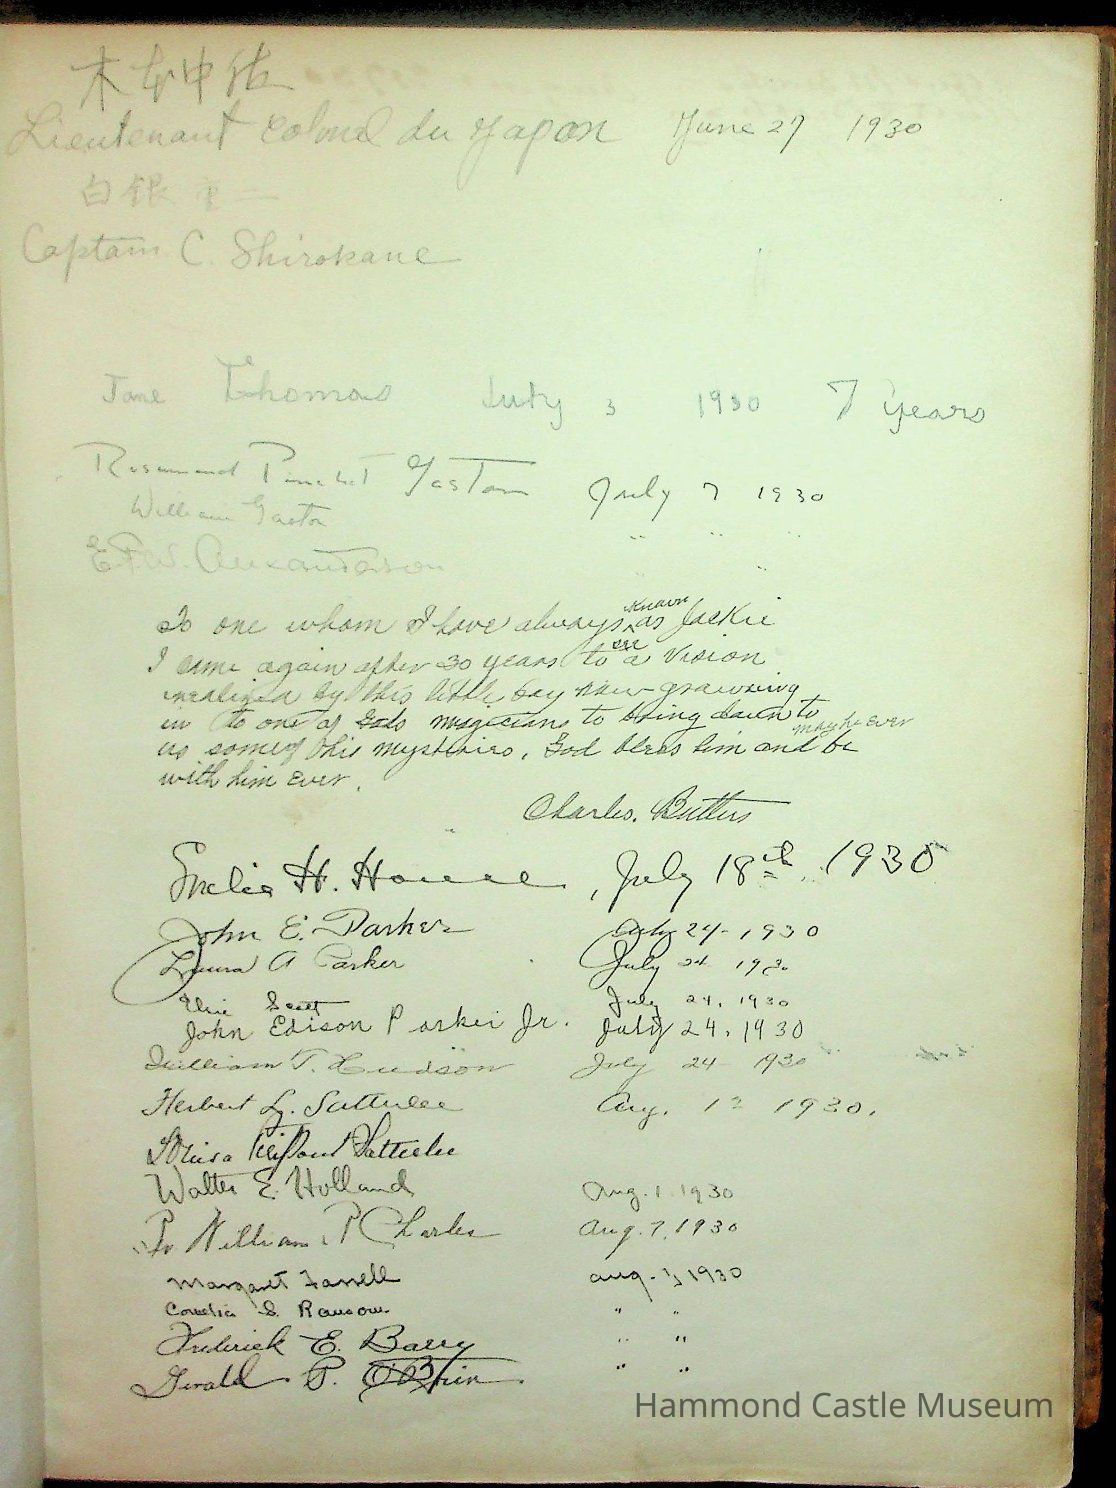 Lieutenant Colonel du Japon June 27 1930
白銀 重一
Captain C. Shirokane
Jane Thomas July 3 1930 7 years
Rosamond Pinchot Gaston July 7 1930
William Gaston " " "
E.F.W. Alexanderson " "
To one whom I have always known as Jackie
I came again after 30 years to see a vision
realized by this little boy now growing
in to one of Gods magicians to bring down to
us some of his mysteries. God bless him and may he ever be
with him ever.
Charles. Butters
H. House, July 18th 1930
John E. Parker July 24 - 1930
Laura A Parker July 24 193
Elsie Scott July 24, 1930
John Edison Parker Jr. July 24, 1930
William T. Hudson July 24 1930
Herbert L. Satterlee Aug. 1930.
Louisa Pierpont Satterlee
Walter E. Holland Aug. 1. 1930
William P Charles Aug. 7, 1930
Margaret Farrell Aug. 1930
Cornelia S. Ransom " "
Frederick E. Barry " "
Gerald P. O'Brien " "
Hammond Castle Museum